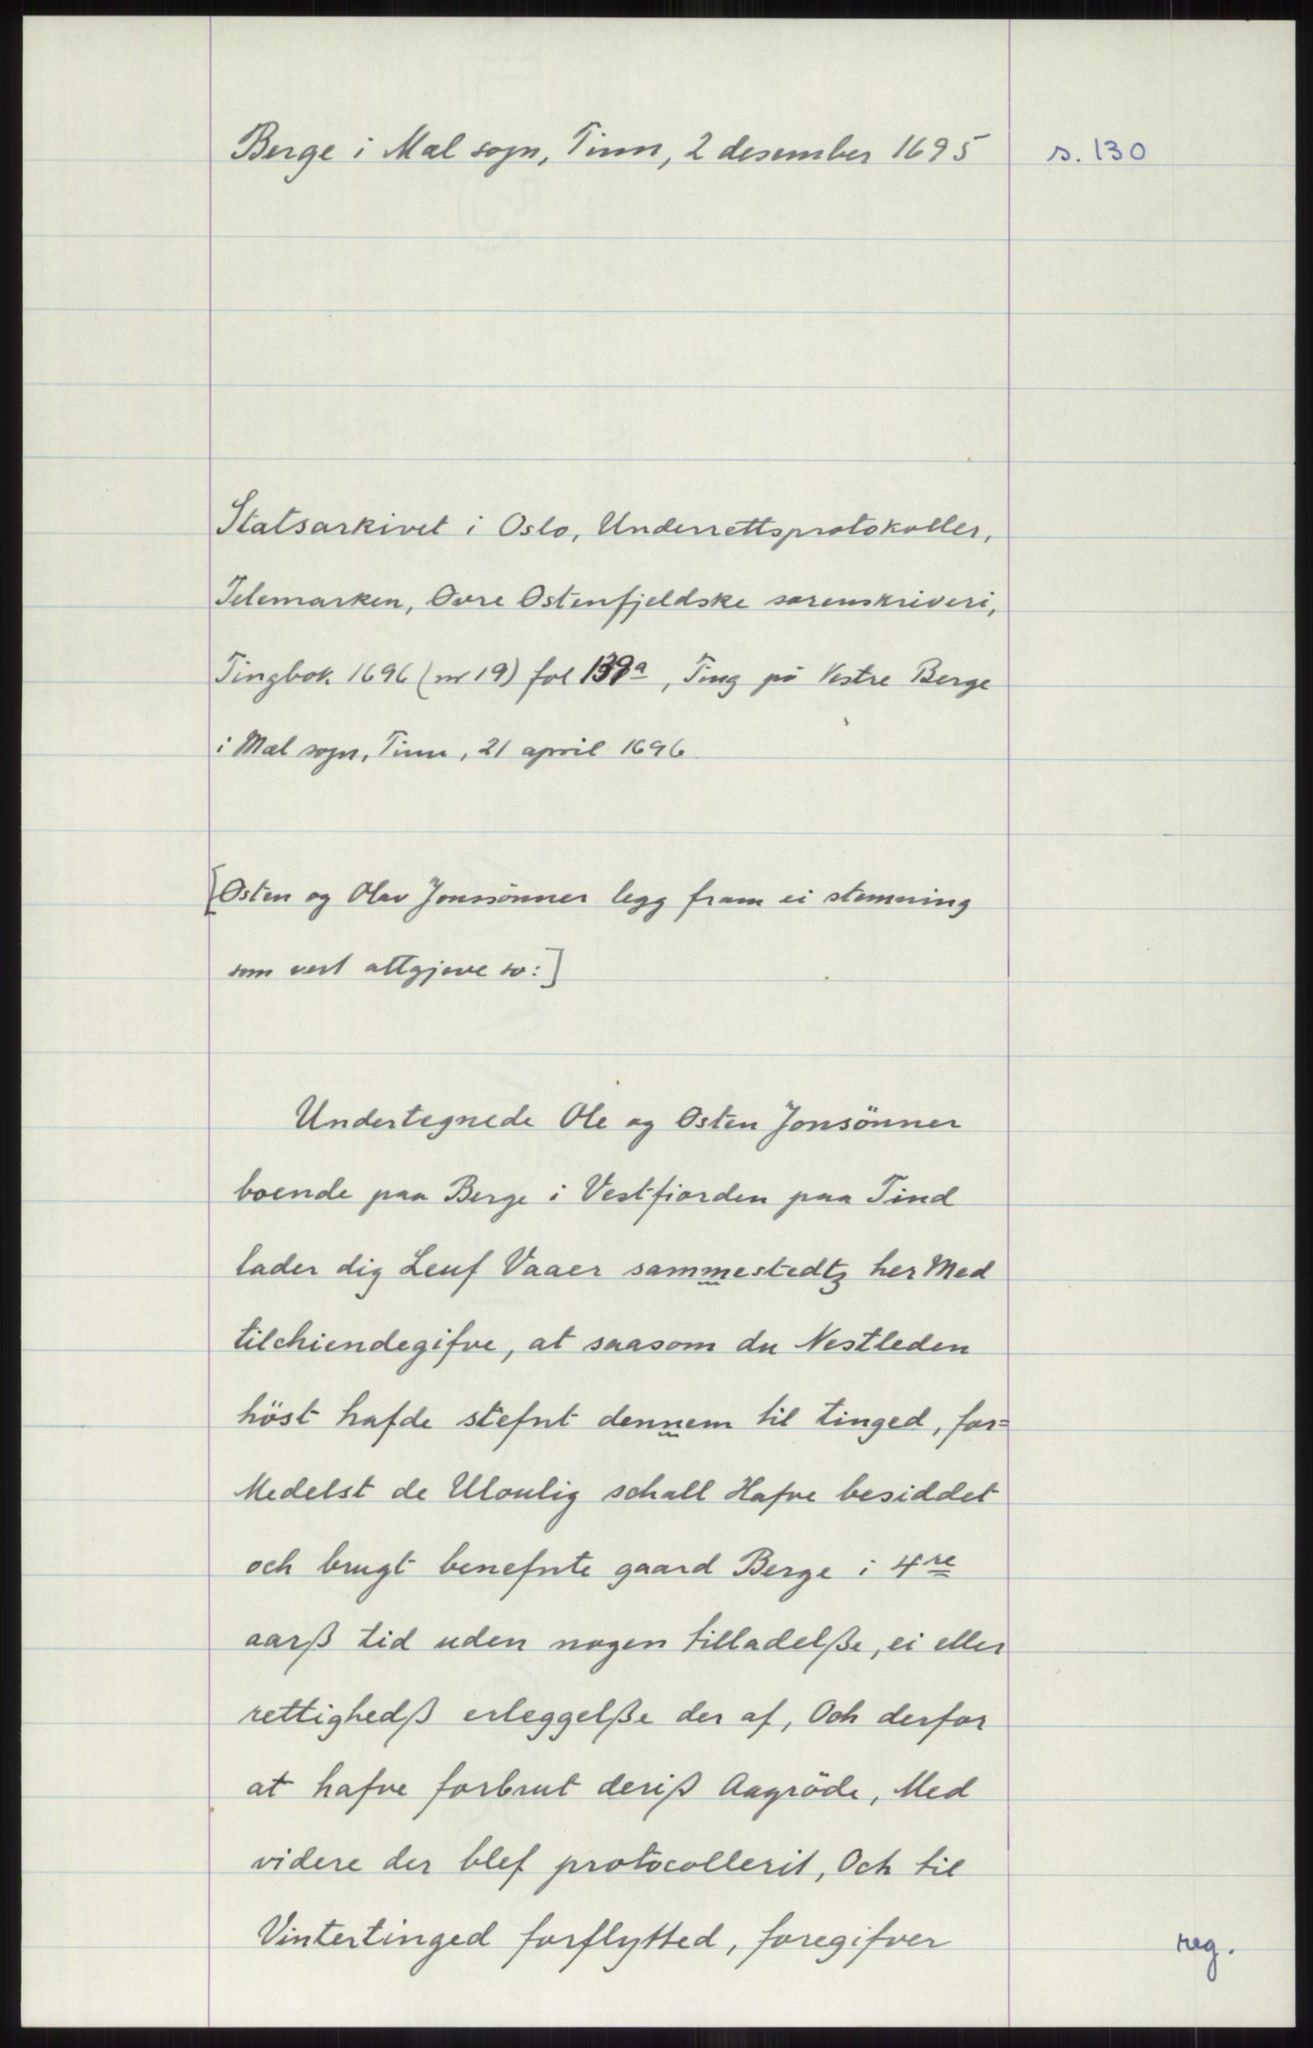 Berge i Mæl sogn, Tinn, 2 desember 1695
s. 130
Statsarkivet i Oslo, Underrettsprotokoller,
Telemarken, Øvre Østenfjeldske sorenskriveri,
Tingbok 1696 (nr 19) fol 139a, Ting på Vestre Berge
i Mæl sogn, Tinn, 21 april 1696.
[Østen og Olav Jonssönner legg fram ei stemning
som vert attgjeve so:]
Undertegnede Ole og Østen Jonsönner
boende paa Berge i Vestfiorden paa Tind
lader dig Leuf Vaaer sammestedtz her Med
tilchiendegifve, at saasom du Nestleden
höst hafde stefnt dennem til tinged, for=
Medelst de Ulovlig schall Hafve besiddet
och brugt benefnte gaard Berge i 4re
aarß tid uden nogen tilladelße, ei eller
rettighedß erleggelße der af, Och derfor
at hafve forbrut deriß Aagröde, Med
videre der blef protocollerit, Och til
Vintertinged forflytted, foregifver
reg.